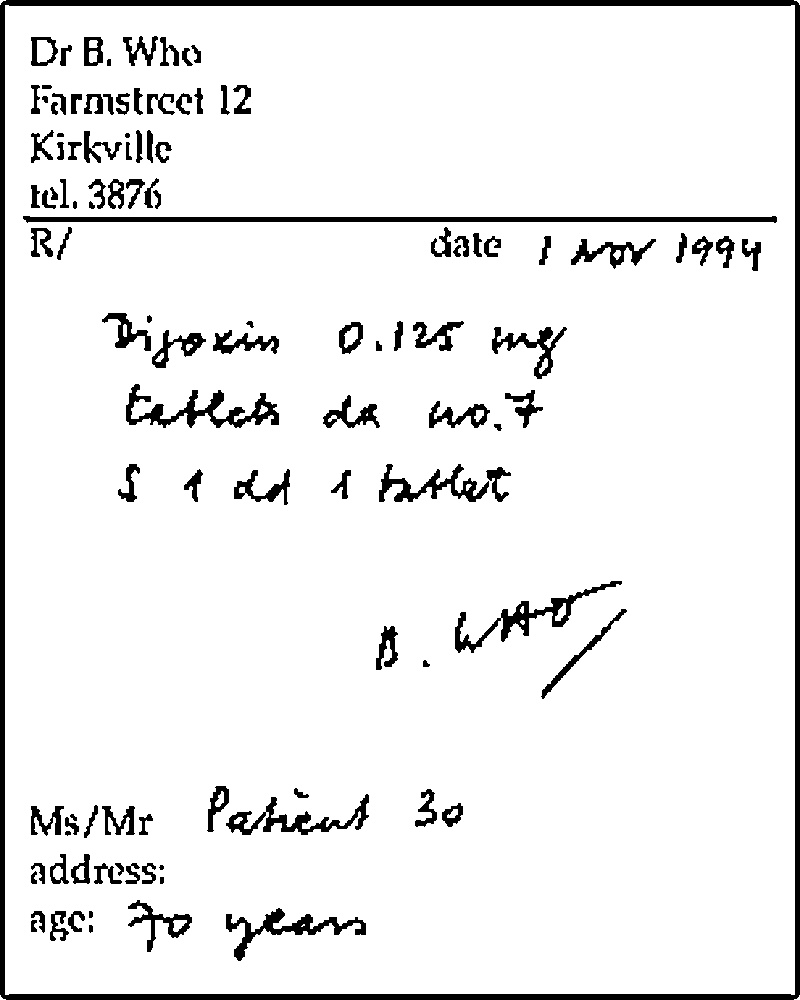 Dr B. Who
Farmstreet 12
Kirkville
tel. 3876
R/ date 1 nov 1994
Digoxin 0.125 mg
tablets da no. 7
S 1 dd 1 tablet
B. WHO
Ms/Mr Patient 30
address:
age: 70 years